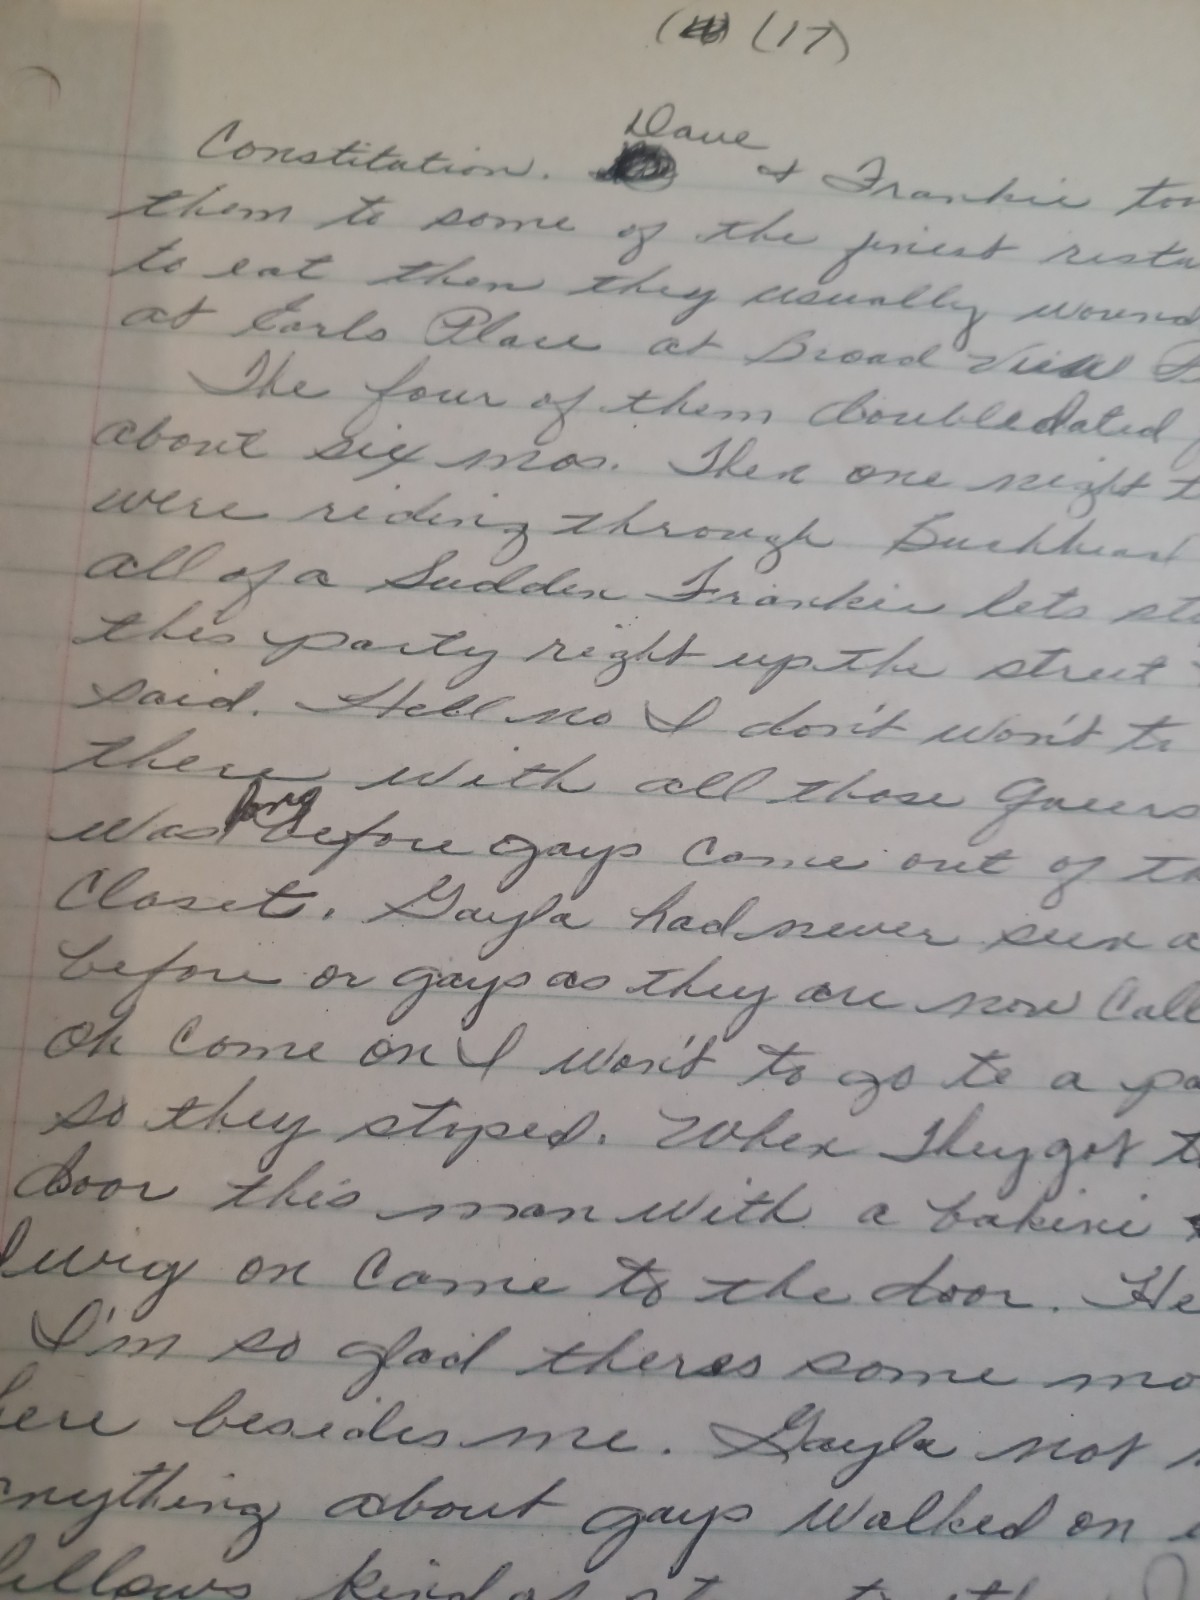 (17)
Constitution. Dave & Frankie
them to some of the finest
to eat then they usually wound
at Earls Place at Broad View
The four of them doubledated
about six mos. Then one night
were riding through Buckhead
all of a Sudden Frankie lets
this party right up the street
said. Hell no I don't won't to
there with all those Queers
was long before gays come out of
Closet. Gayla had never seen a
before or gays as they are now
Oh come on I won't to go to a
so they stoped. When They got
door this man with a bakini
wig on came to the door. He
I'm so glad theres some
here besides me. Gayla not
anything about gays walked on
fellows kind of